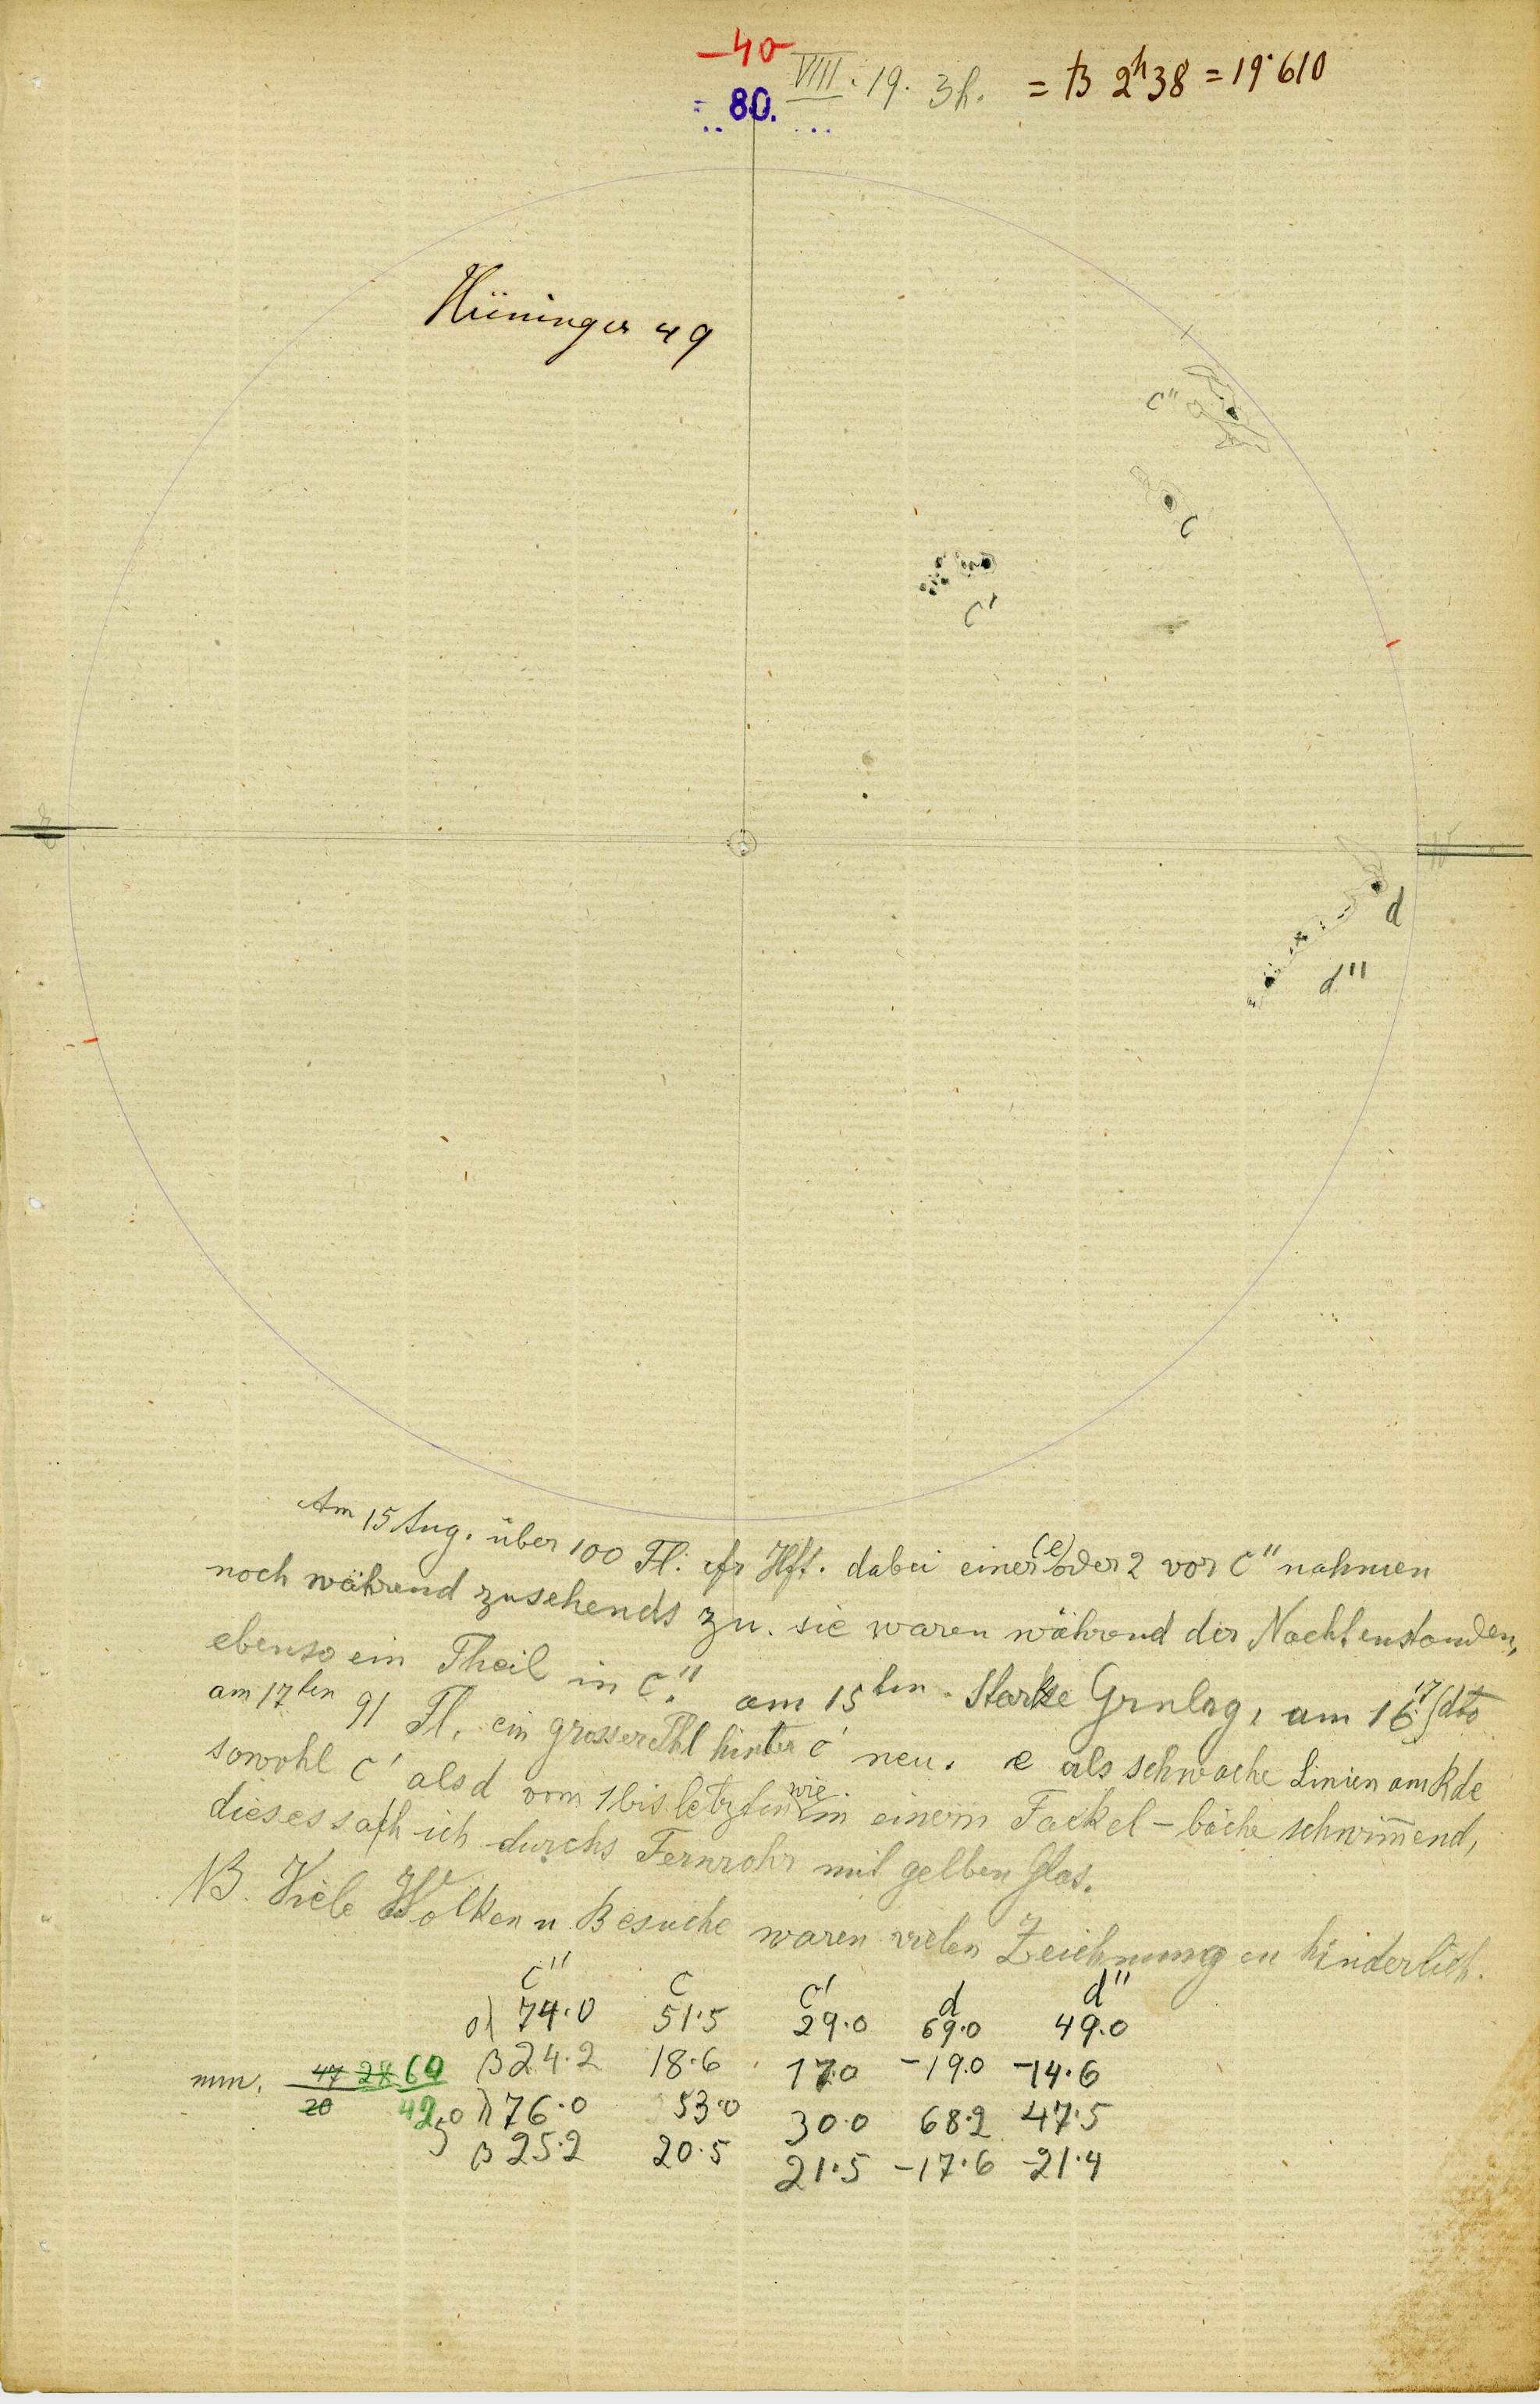 -40
80.
VIII. 19. 3h. = B 2h38 = 19.610
Hüninger 49
c"
c
c'
d
d"
Am 15 Aug. über 100 Fl. Hft. dabei einer (e) oder 2 vor c" nahmen
noch während zusehends zu. sie waren während der Nacht enstanden,
ebenso ein Theil in c". am 15ten. Starke Grnlag, am 16. 17 dto
am 17ten 91 Fl. ein grosser Thl hinter c' neu. e als schwache Linien am Rde
sowohl c' als d vom 1 bis letzten wie in einem Fackel-bäche schwimmend,
dieses sah ich durchs Fernrohr mit gelben Glas.
NB. Viele Wolken u Besuche waren vielen Zeichnungen hinderlich.
c" c c' d d"
74.0 51.5 29.0 69.0 49.0
β 24.2 18.6 17.0 -19.0 -14.6
mm. 47 28 60
20 42.0 76.0 53.0 30.0 68.2 47.5
β 25.2 20.5 21.5 -17.6 -21.4